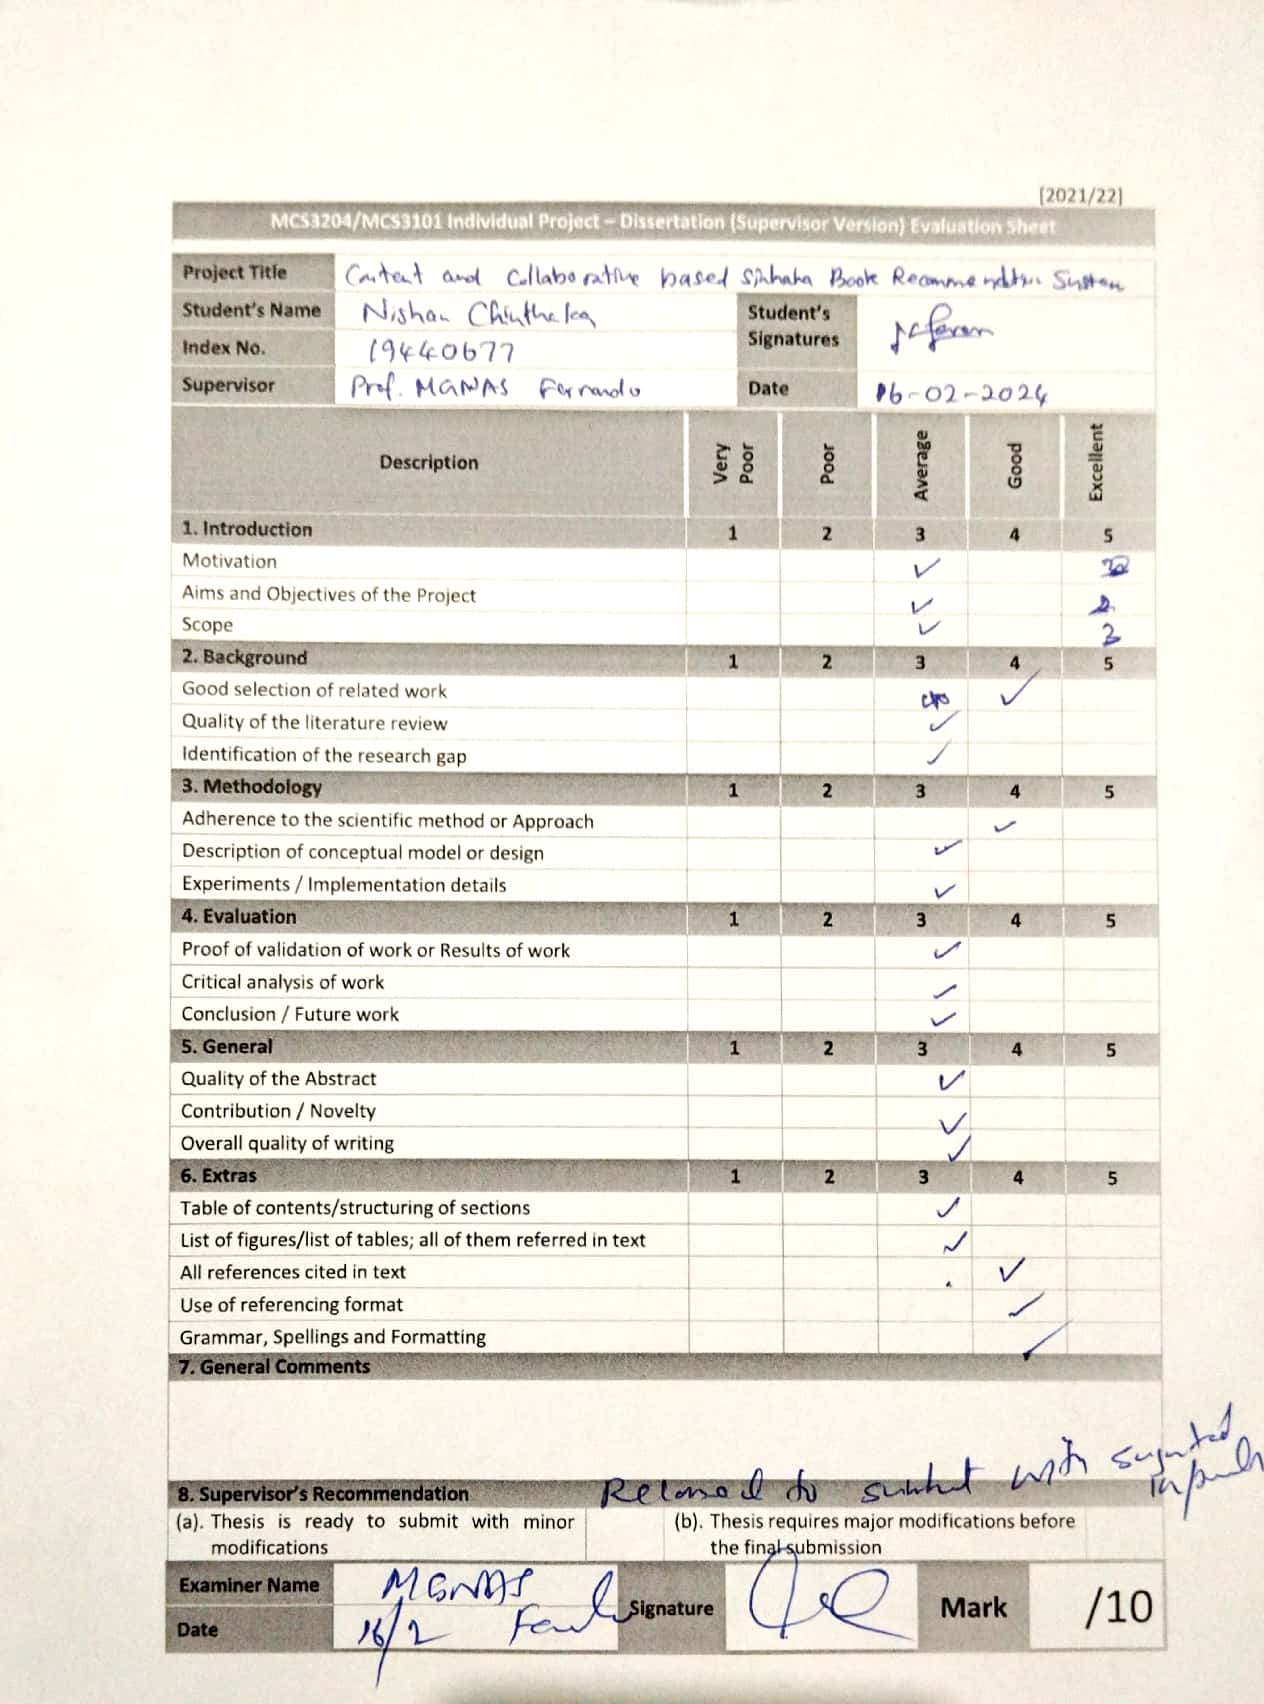 [2021/22]
MCS3204/MCS3101 Individual Project – Dissertation (Supervisor Version) Evaluation Sheet
Project Title Content and Collaborative based Sinhala Book Recommendation System
Student's Name Nishan Chinthaka Student's Signatures
Index No. 19440677
Supervisor Prof. MGNAS Fernando Date 16-02-2024
Description Very Poor Poor Average Good Excellent
1. Introduction 1 2 3 4 5
Motivation ✓
Aims and Objectives of the Project ✓
Scope ✓
2. Background 1 2 3 4 5
Good selection of related work ✓
Quality of the literature review ✓
Identification of the research gap ✓
3. Methodology 1 2 3 4 5
Adherence to the scientific method or Approach ✓
Description of conceptual model or design ✓
Experiments / Implementation details ✓
4. Evaluation 1 2 3 4 5
Proof of validation of work or Results of work ✓
Critical analysis of work ✓
Conclusion / Future work ✓
5. General 1 2 3 4 5
Quality of the Abstract ✓
Contribution / Novelty ✓
Overall quality of writing ✓
6. Extras 1 2 3 4 5
Table of contents/structuring of sections ✓
List of figures/list of tables; all of them referred in text ✓
All references cited in text ✓
Use of referencing format ✓
Grammar, Spellings and Formatting ✓
7. General Comments
8. Supervisor's Recommendation to submit with
(a). Thesis is ready to submit with minor modifications
(b). Thesis requires major modifications before the final submission
Examiner Name MGNAS
Date 16/2 Signature Mark /10